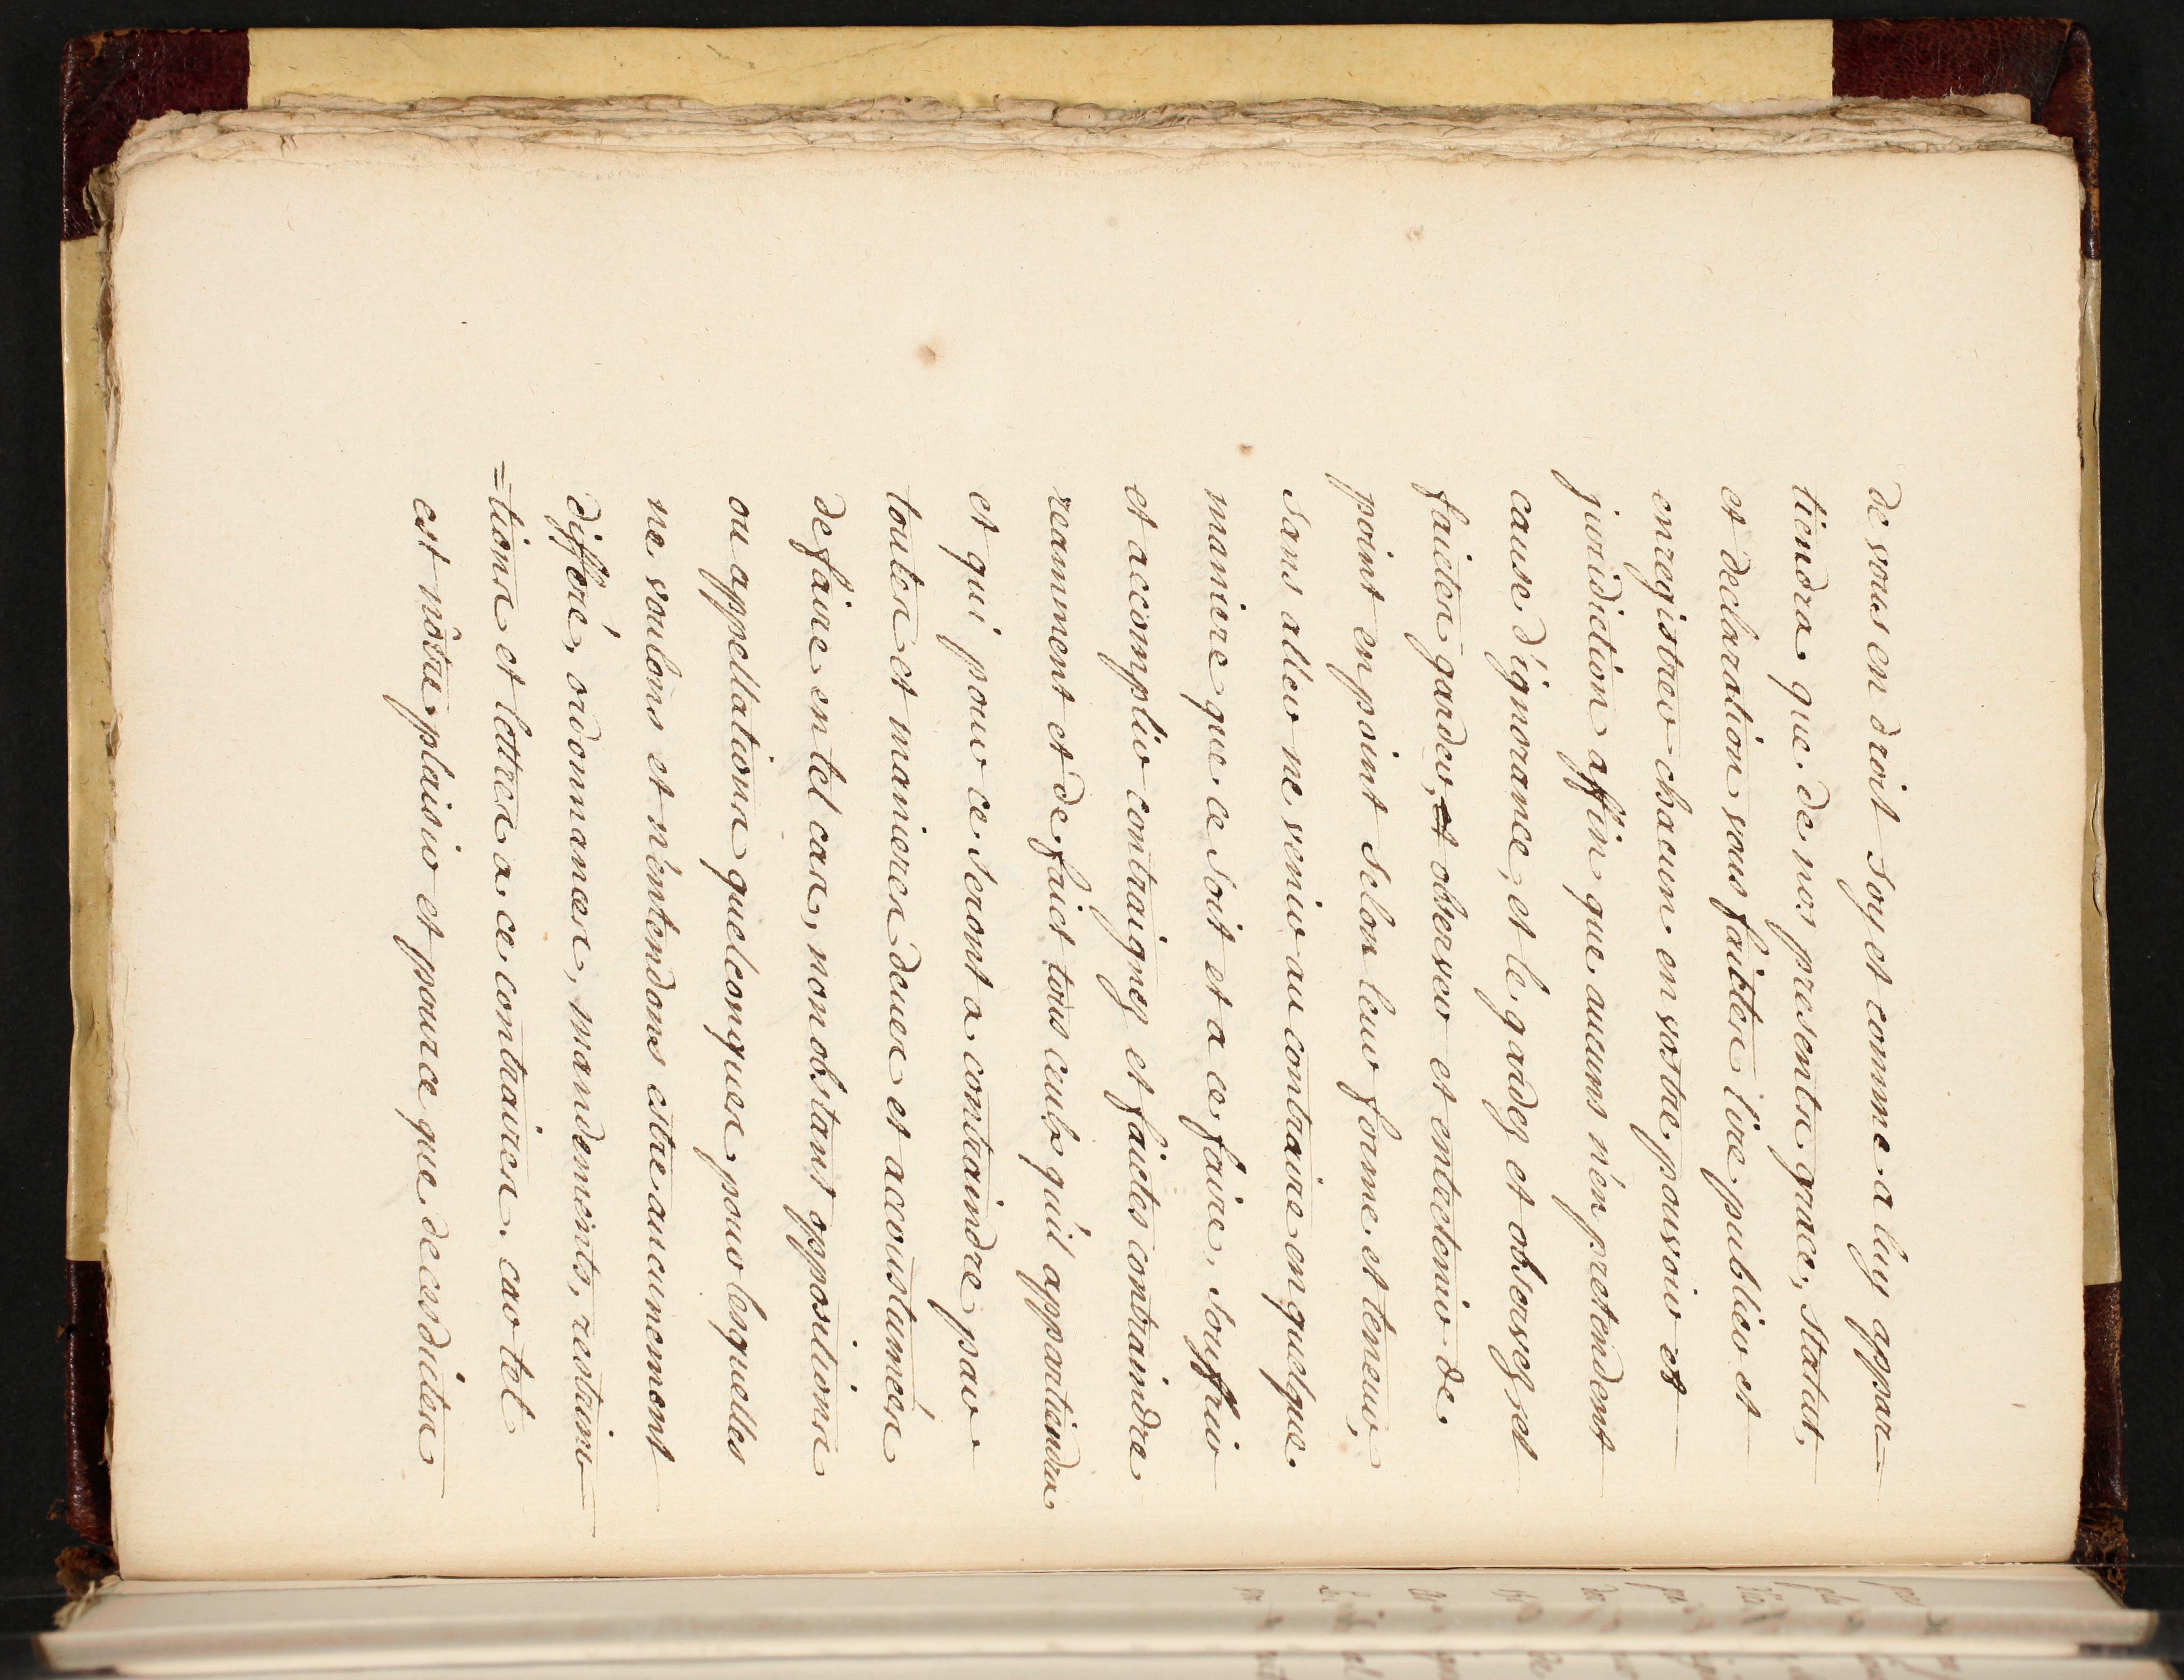 de vous en droit soy et comme a luy appar-
tiendra que de nos presentes grace, statut,
et declaration vous faittes lire publier et
enregistrer chacun en vostre pouvoir et
juridiction affin que aucuns n'en pretendent
cause d'ignorance, et le gardez et observez, et
faictes garder, et observer et entretenir de
point en point selon leur forme et teneur,
sans aller ne venir au contraire en quelque
maniere que ce soit et a ce faire, souffrir
et accomplir contraignez et faictes contraindre
reaument et de faict tous ceulx qu'il appartiendra
et qui pour ce seront a contraindre par
toutes et manieres deues et accoustumées
de faire en tel cas, nonobstant oppositions
ou appellations quelconques pour lesquelles
ne voulons et n'entendons estre aucunement
differé, ordonnances, mandements, restrinc
=tions et lettres a ce contraires. car tel
est nôstre plaisir et pource que decesdites